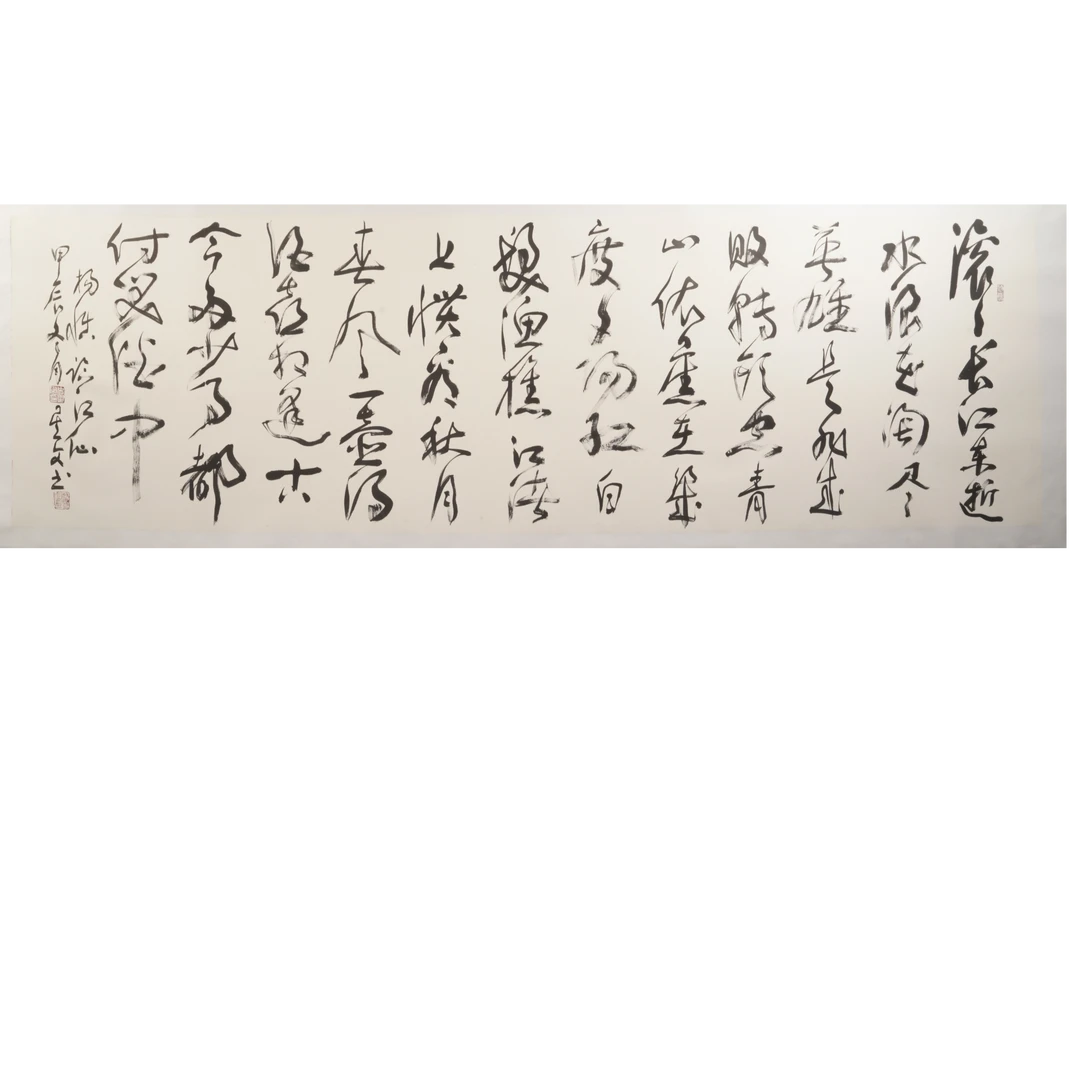 滚〻长江东逝
水浪花淘尽
英雄是非成
败转头空青
山依舊在幾
度夕阳红白
髮渔樵江渚
上惯看秋月
春风一壶浊
酒喜相逢古
今多少事都
付笑谈中
杨慎临江仙
甲辰